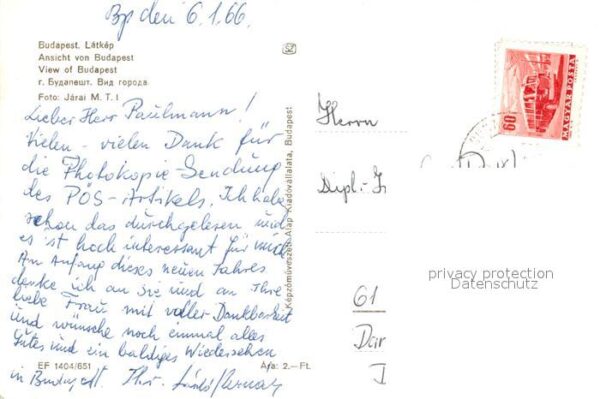 Bp den 6.1.66.
Budapest. Látkép
Ansicht von Budapest
View of Budapest
г. Будапешт. Вид города
Foto: Járai M. T. I
Lieber Herr Paulmann!
Vielen - vielen Dank für
die Photokopie-Sendung
des PÖS-Artikels. Ich habe
schon das durchgelesen und
es ist hoch interessant für mich.
Am Anfang dieses neuen Jahres
denke ich an Sie und an Ihre
liebe Frau mit voller Dankbarkeit
und wünsche noch einmal alles
Gutes und ein baldiges Wiedersehen
in Budapest. Ihr László
EF 1404/651
Ára: 2.- Ft.
Képzőművészeti Alap Kiadóvállalata, Budapest
Herrn
Dipl.-
61
Dar
60f
MAGYAR POSTA
privacy protection
Datenschutz